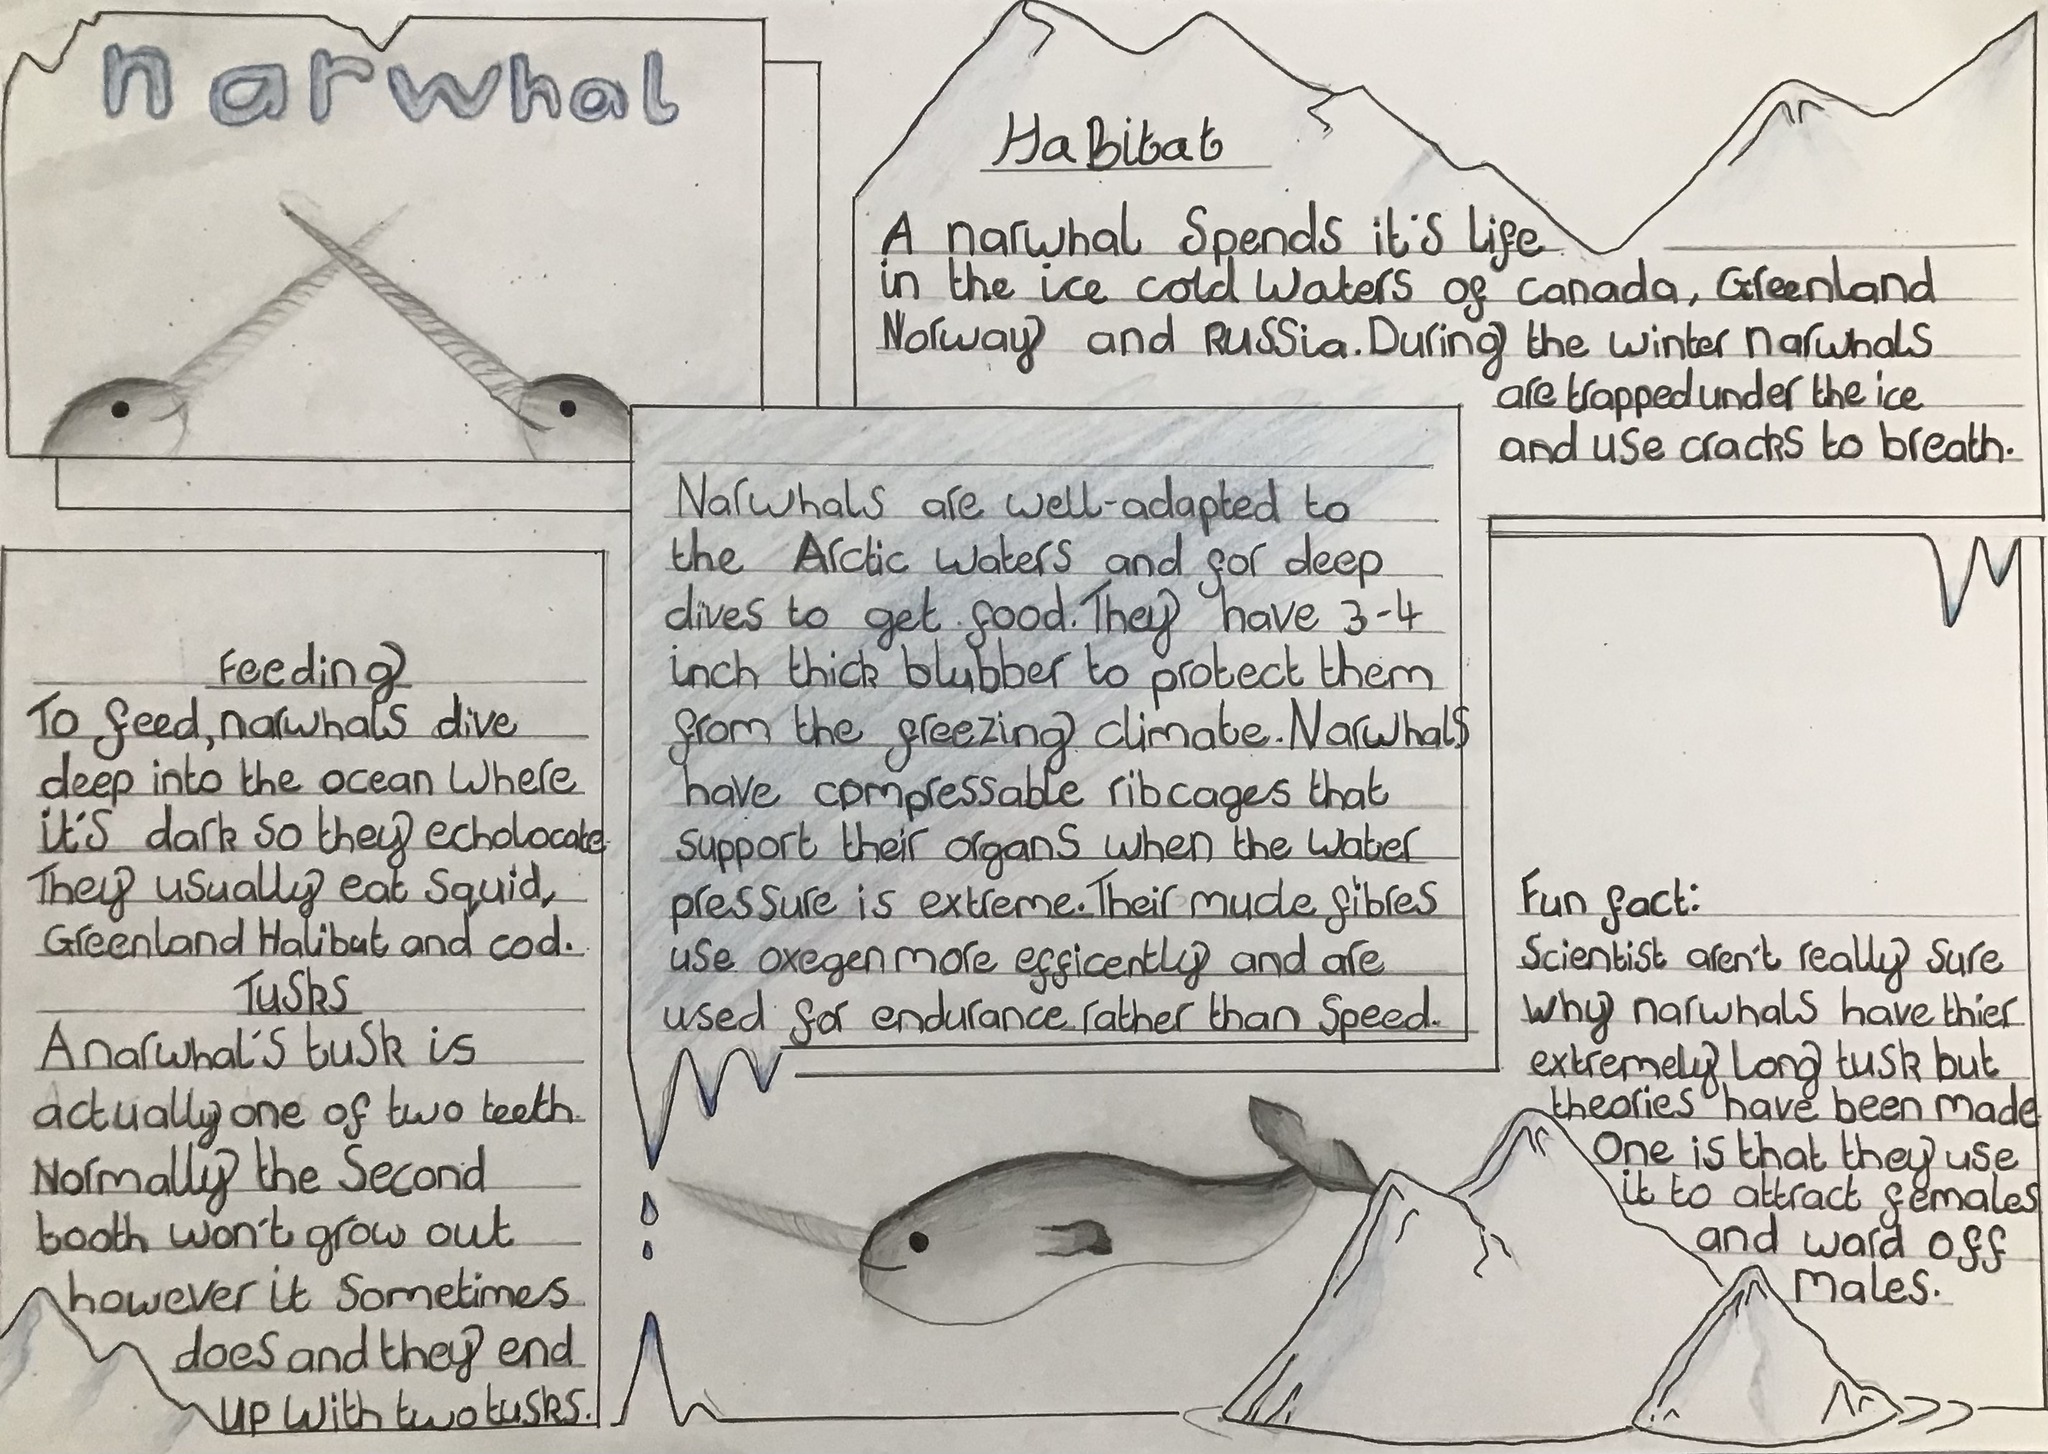 narwhal
HaBitat
A narwhal Spends it's life
in the ice cold Waters of canada, Greenland
Norway and RUSSia. During the winter narwhals
are trapped under the ice
and use cracks to breath.
Narwhals are well-adapted to
the Arctic waters and for deep
dives to get food. They have 3-4
inch thick blubber to protect them
from the freezing climate. Narwhals
have compressable ribcages that
support their organs when the water
pressure is extreme. Their mucle fibres
use oxegen more efficently and are
used for endurance rather than speed.
Feeding
To feed, narwhals dive
deep into the ocean where
it's dark so they echolocate
They usually eat squid,
Greenland Halibut and cod.
Tusks
A narwhal's tusk is
actually one of two teeth.
Normally the second
tooth won't grow out
however it sometimes
does and they end
up with two tusks.
Fun fact:
Scientist aren't really sure
why narwhals have thier
extremely long tusk but
theories have been made
One is that they use
it to attract females
and ward off
males.